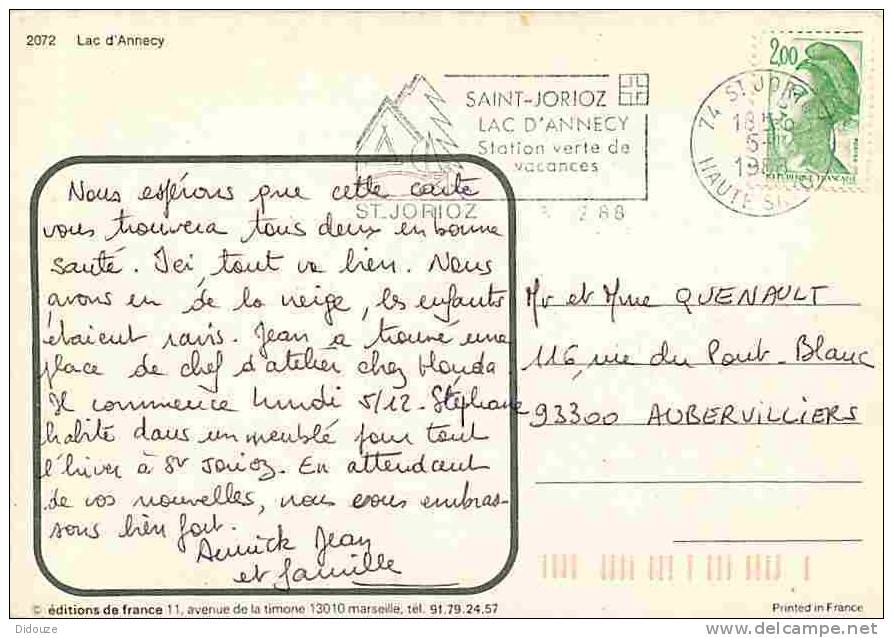 2072 Lac d'Annecy
SAINT-JORIOZ
LAC D'ANNECY
Station verte de
vacances
ST.JORIOZ
2 88
74 ST JORIOZ
18 H
5-12
1988
HAUTE S
2,00
Nous espérons que cette carte
vous trouvera tous deux en bonne
santé. Ici, tout va bien. Nous
avons eu de la neige, les enfants
étaient ravis. Jean a trouvé une
place de chef d'atelier chez Honda
Il commence lundi 5/12. Stéphane
habite dans un meublé pour tout
l'hiver à St Jorioz. En attendant
de vos nouvelles, nous vous embras-
sons bien fort.
Annick Jean
et famille
Mr et Mme QUENAULT
116, rue du Pont-Blanc
93300 AUBERVILLIERS
© éditions de france 11, avenue de la timone 13010 marseille, tél. 91.79.24.57
Printed in France
© Didouze
delcampe.net